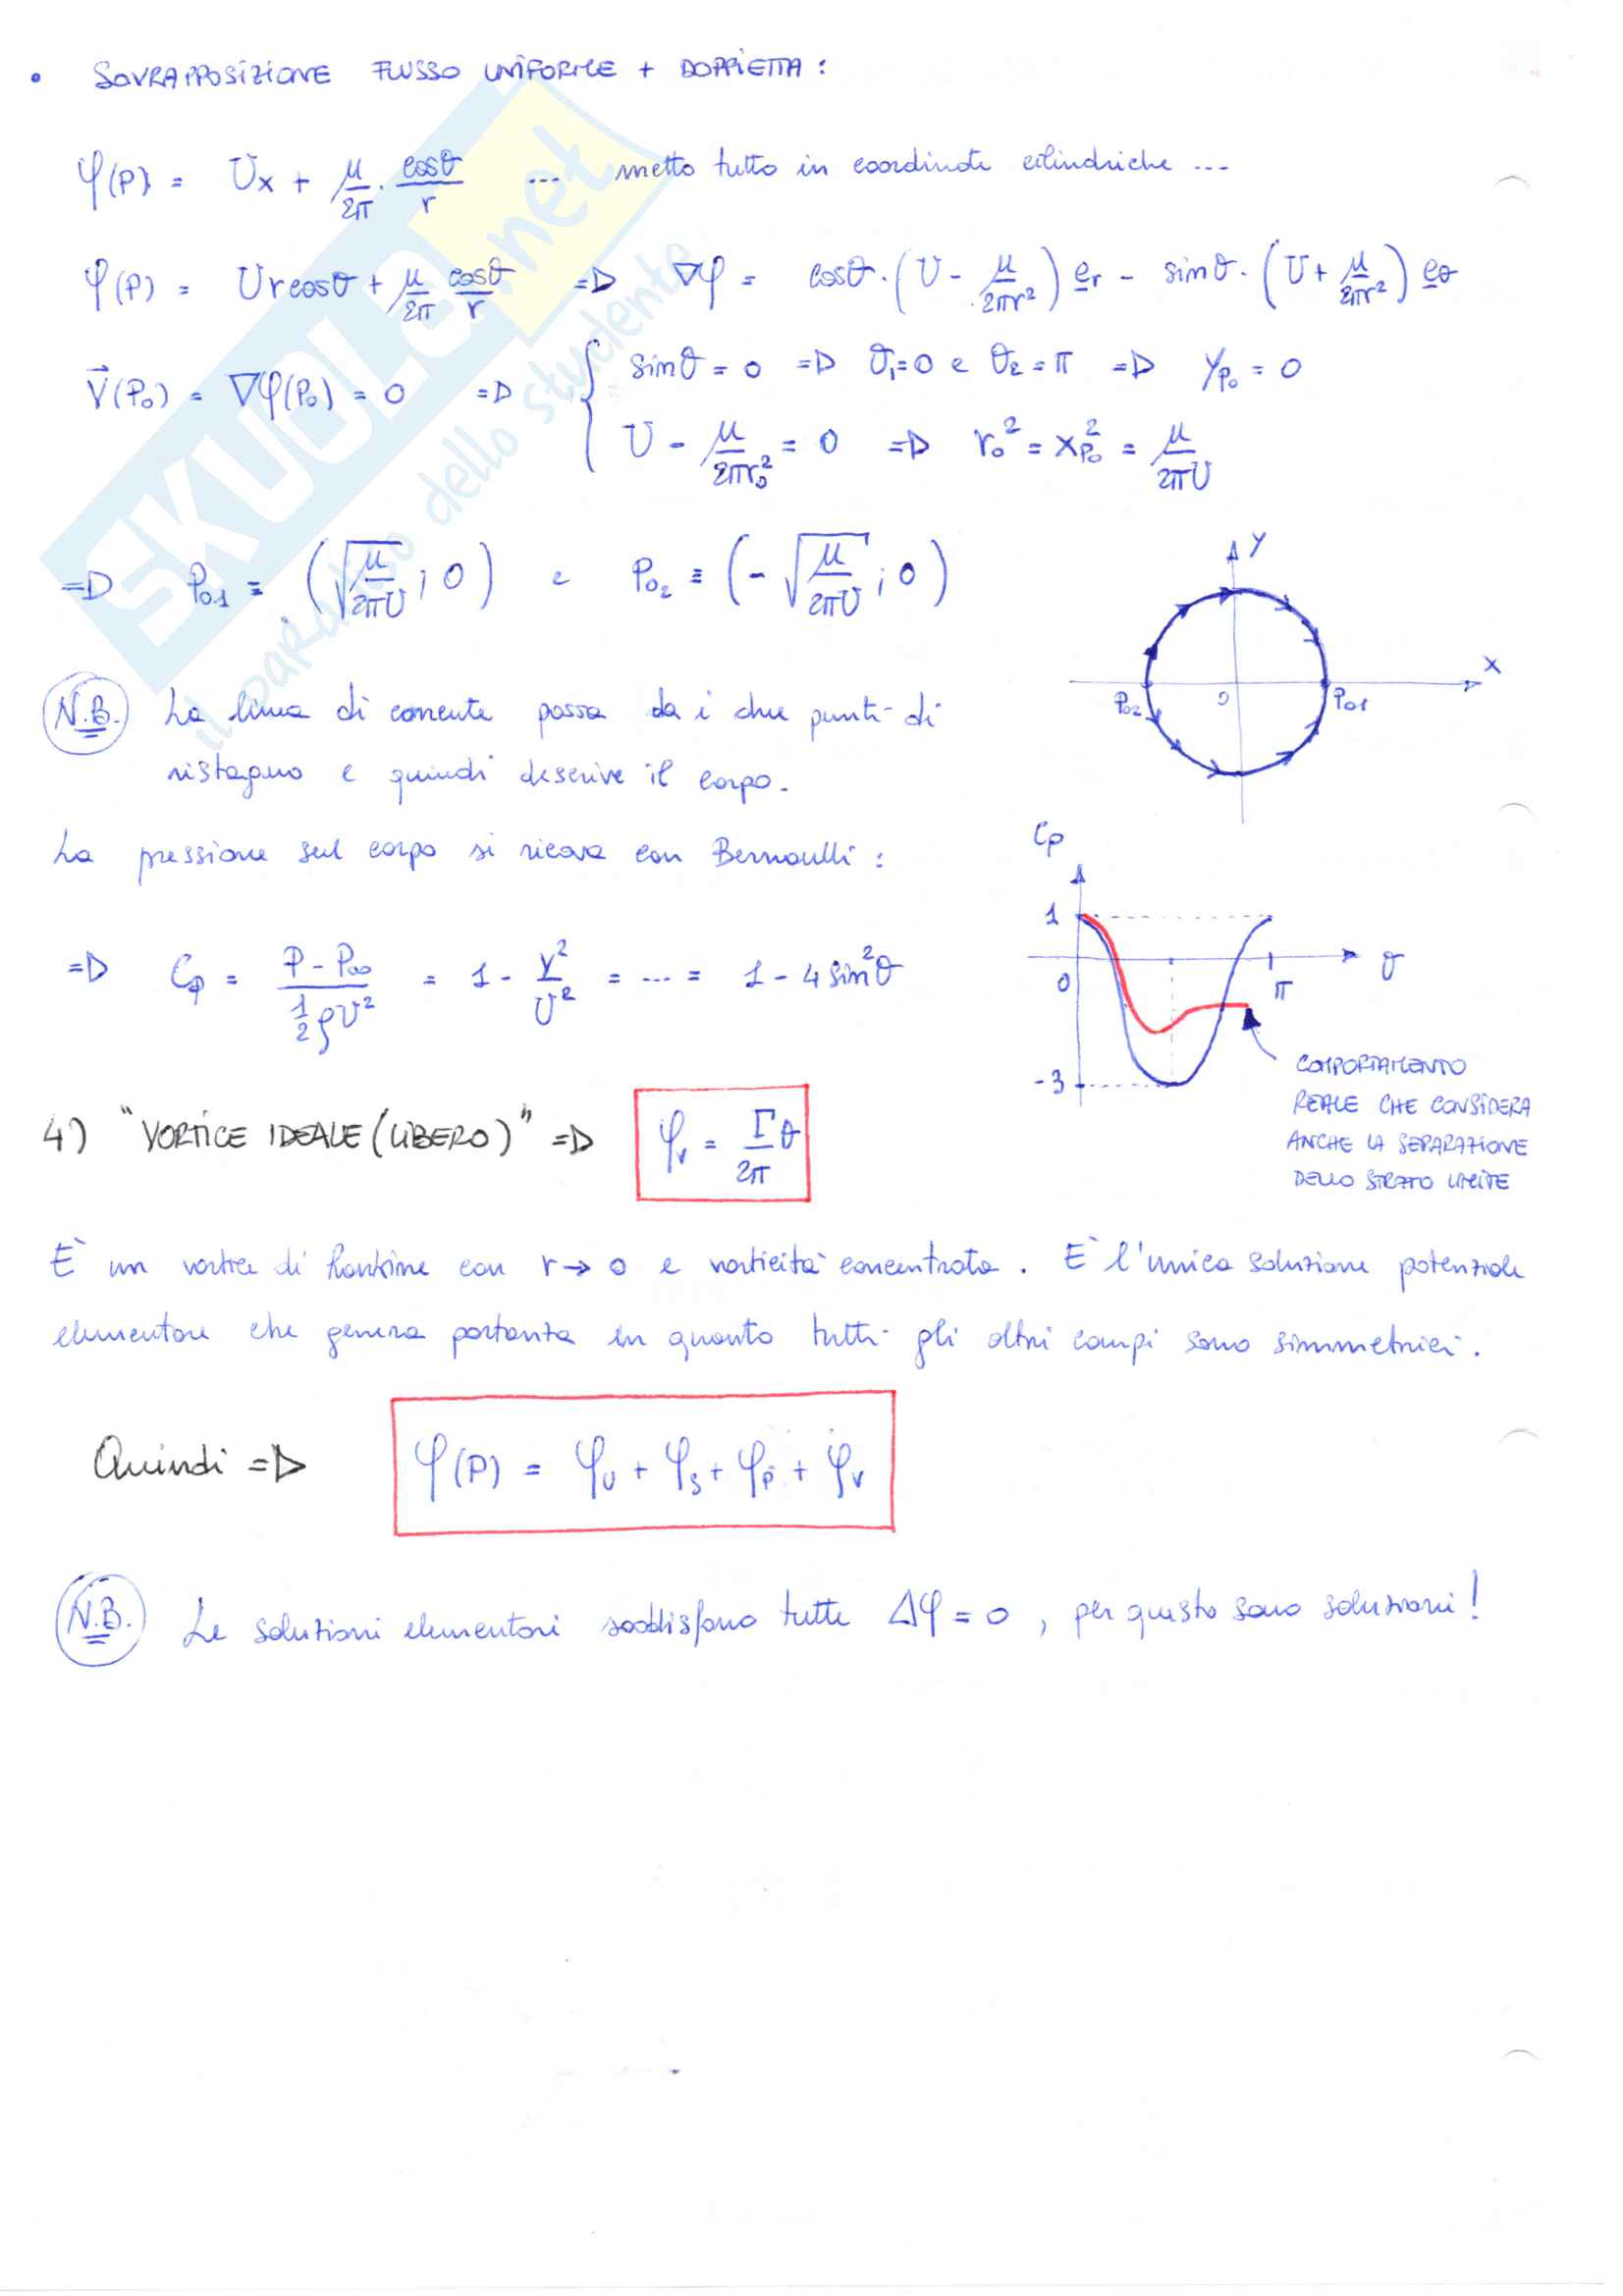 • SOVRAPPOSIZIONE FLUSSO UNIFORME + DOPPIETTA :
φ(P) = Ux + μ/2π · cosθ/r ... metto tutto in coordinate cilindriche ...
φ(P) = Urcosθ + μ/2π cosθ/r => ∇φ = cosθ·(U - μ/2πr²) er - sinθ·(U + μ/2πr²) eθ
V(P₀) = ∇φ(P₀) = 0 => { sinθ = 0 => θ₁=0 e θ₂=π => yP₀ = 0
U - μ/2πr₀² = 0 => r₀² = xP₀² = μ/2πU
=> P₀₁ ≡ (√μ/2πU ; 0) e P₀₂ ≡ (-√μ/2πU ; 0)
y
x
P₀₂ 0 P₀₁
N.B. La linea di corrente passa da i due punti di
ristagno e quindi descrive il corpo.
La pressione sul corpo si ricava con Bernoulli :
=> Cp = P - P∞ / ½ρU² = 1 - V²/U² = ... = 1 - 4 sin²θ
Cp
1
0
π
θ
-3
COMPORTAMENTO
REALE CHE CONSIDERA
ANCHE LA SEPARAZIONE
DELLO STRATO LIMITE
4) "VORTICE IDEALE (LIBERO)" => φv = Γ/2π θ
È un vortice di Rankine con r→0 e vorticità concentrata. È l'unica soluzione potenziale
elementare che genera portanza in quanto tutti gli altri campi sono simmetrici.
Quindi => φ(P) = φU + φS + φP + φV
N.B. Le soluzioni elementari soddisfano tutte Δφ = 0 , per questo sono soluzioni!
SKUOLA.net
il paradiso dello studente